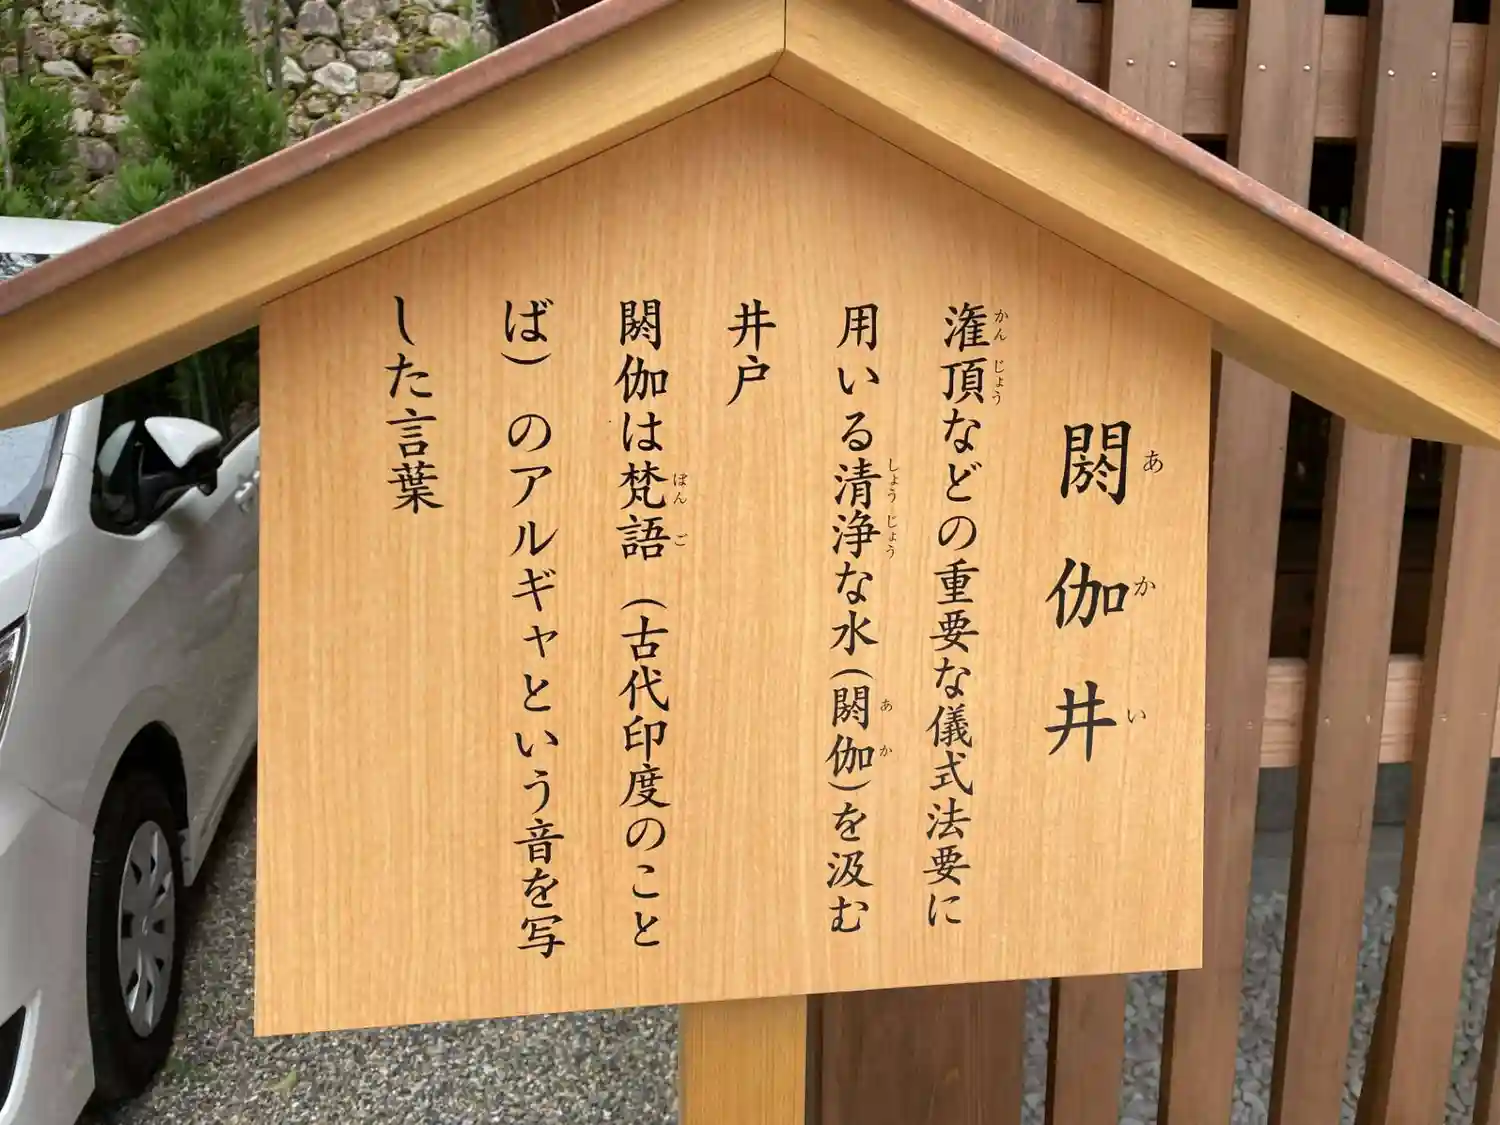 閼伽井
灌頂などの重要な儀式法要に
用いる清浄な水(閼伽)を汲む
井戸
閼伽は梵語(古代印度のこと
ば)のアルギャという音を写
した言葉
あかい
かんじょう
しょうじょう
あか
ぼんご